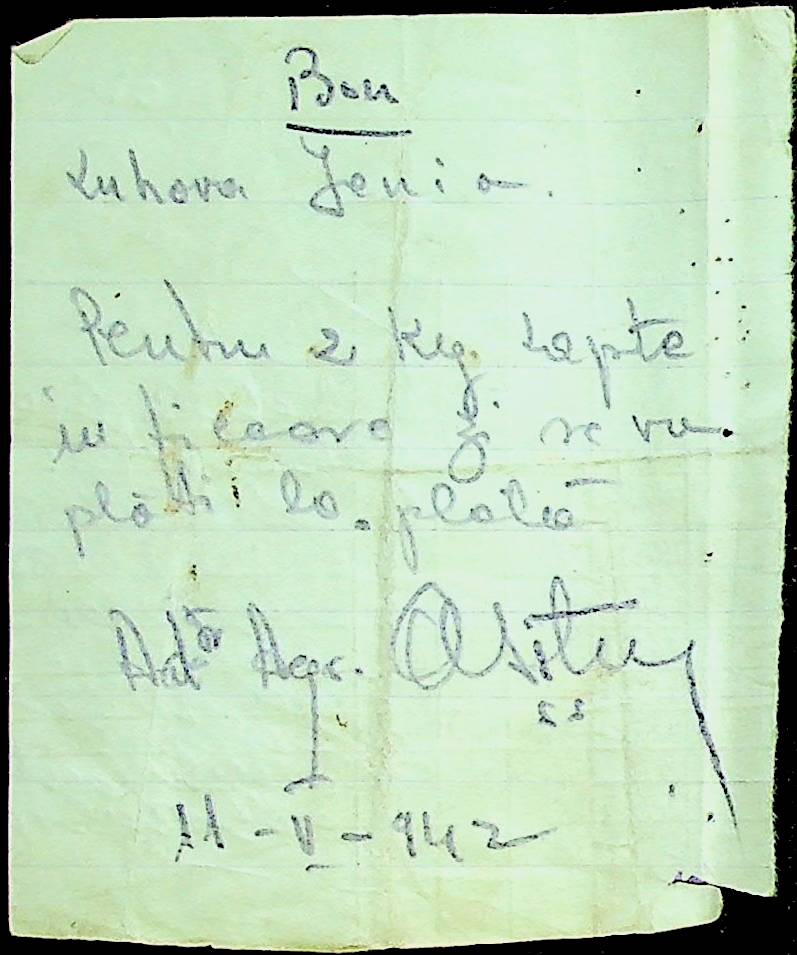 Bon
Luhova Jenia.
Pentru 2 kg lapte
in fiecare zi se va
plăti la plată
Agr.
11-V-942